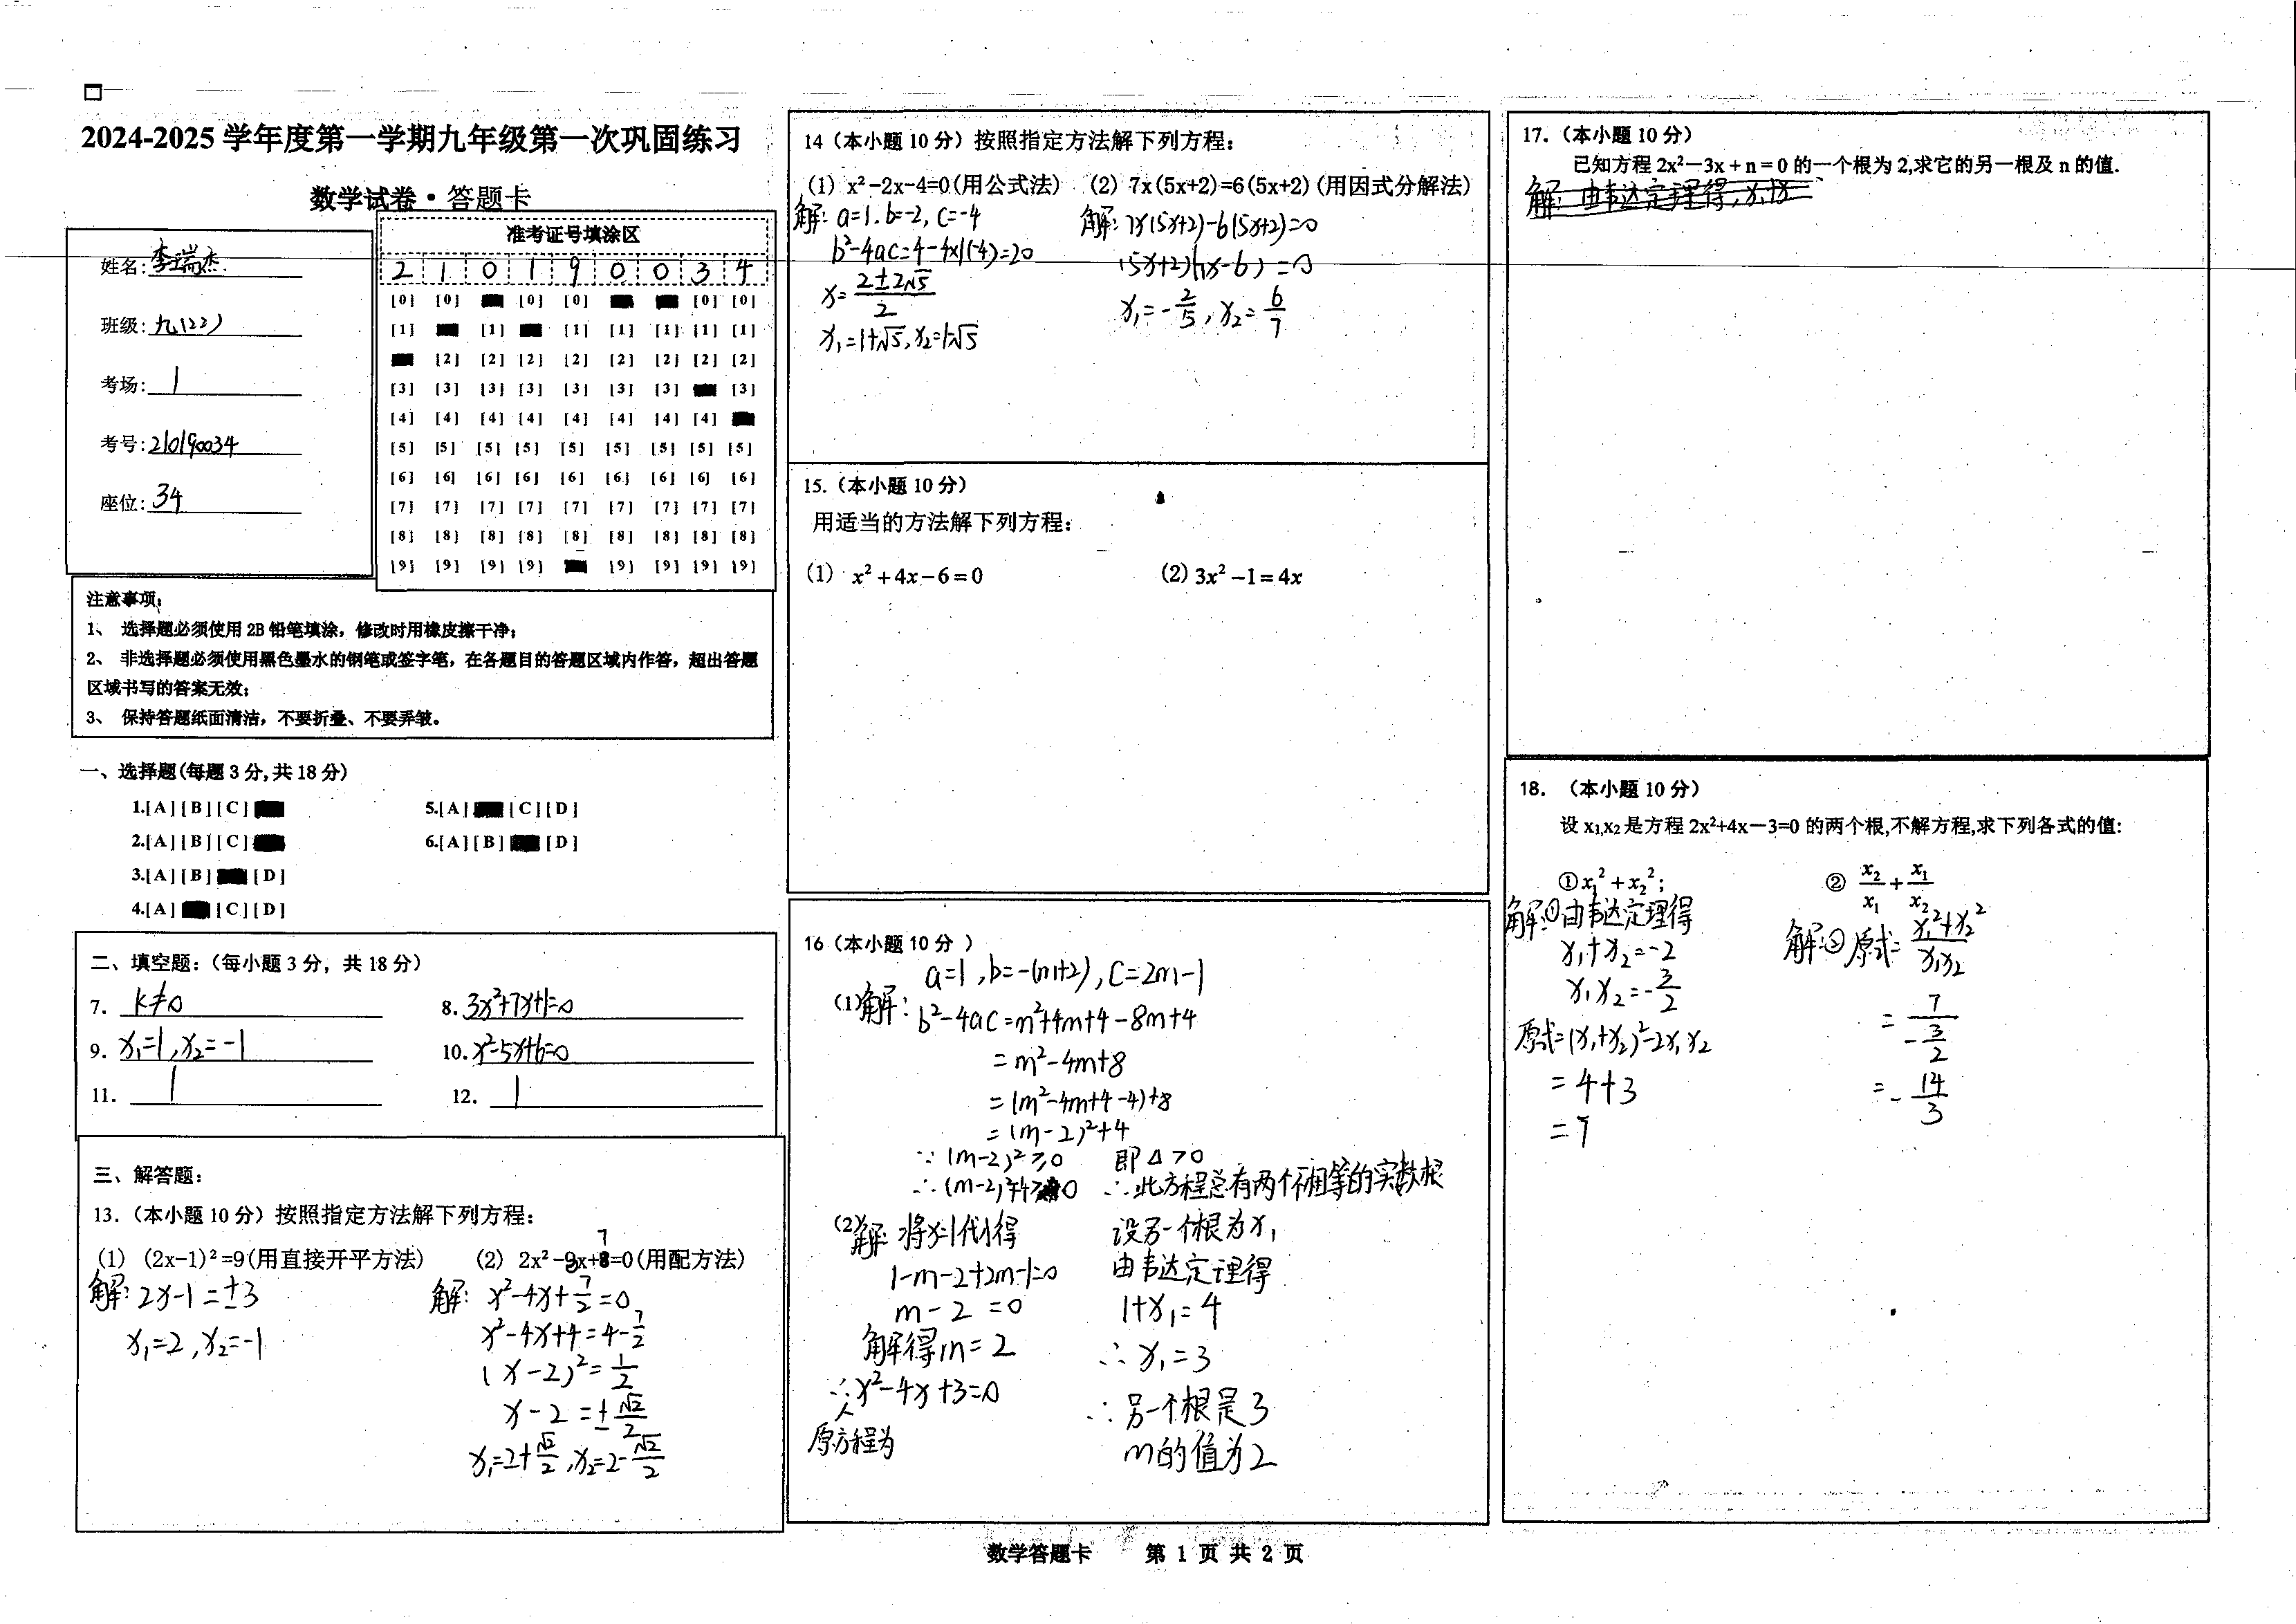 2024-2025 学年度第一学期九年级第一次巩固练习
数学试卷·答题卡
姓名: 李瑞杰
班级: 九(22)
考场: 1
考号: 210190034
座位: 34
准考证号填涂区
2 1 0 1 9 0 0 3 4
[0] [0] [0] [0] [0] [0]
[1] [1] [1] [1] [1] [1] [1]
[2] [2] [2] [2] [2] [2] [2] [2]
[3] [3] [3] [3] [3] [3] [3] [3]
[4] [4] [4] [4] [4] [4] [4] [4]
[5] [5] [5] [5] [5] [5] [5] [5] [5]
[6] [6] [6] [6] [6] [6] [6] [6] [6]
[7] [7] [7] [7] [7] [7] [7] [7] [7]
[8] [8] [8] [8] [8] [8] [8] [8] [8]
[9] [9] [9] [9] [9] [9] [9] [9]
注意事项:
1、 选择题必须使用 2B 铅笔填涂，修改时用橡皮擦干净;
2、 非选择题必须使用黑色墨水的钢笔或签字笔，在各题目的答题区域内作答，超出答题
区域书写的答案无效;
3、 保持答题纸面清洁，不要折叠、不要弄皱。
一、选择题(每题 3 分,共 18 分)
1.[A][B][C]
5.[A] [C][D]
2.[A][B][C]
6.[A][B] [D]
3.[A][B] [D]
4.[A] [C][D]
二、填空题:（每小题 3 分，共 18 分）
7. k≠0
8. 3x²+7x+1=0
9. x₁=1,x₂=-1
10. x²-5x+6=0
11. 1
12. 1
三、解答题:
13.（本小题 10 分）按照指定方法解下列方程:
(1) (2x-1)²=9(用直接开平方法)
解: 2x-1=±3
x₁=2,x₂=-1
7
(2) 2x²-8x+=0(用配方法)
解: x²-4x+7/2=0
x²-4x+4=4-7/2
(x-2)²=1/2
x-2=±√2/2
x₁=2+√2/2,x₂=2-√2/2
14（本小题 10 分）按照指定方法解下列方程:
(1) x²-2x-4=0(用公式法)
解: a=1.b=-2,c=-4
b²-4ac=4-4×1(-4)=20
x=(2±2√5)/2
x₁=1+√5,x₂=1-√5
(2) 7x(5x+2)=6(5x+2)(用因式分解法)
解: 7x(5x+2)-6(5x+2)=0
(5x+2)(7x-6)=0
x₁=-2/5,x₂=6/7
15.（本小题 10 分）
用适当的方法解下列方程:
(1) x²+4x-6=0
(2) 3x²-1=4x
16（本小题 10 分 ）
a=1,b=-(m+2),c=2m-1
(1)解: b²-4ac=m²+4m+4-8m+4
=m²-4m+8
=(m²-4m+4-4)+8
=(m-2)²+4
∵(m-2)²≥0
∴(m-2)²+4>0
即Δ>0
∴此方程总有两个不相等的实数根
(2)解: 将x=1代入得
1-m-2+2m-1=0
m-2=0
解得m=2
∴x²-4x+3=0
原方程为
设另一个根为x₁
由韦达定理得
1+x₁=4
∴x₁=3
∴另一个根是3
m的值为2
17.（本小题 10 分）
已知方程 2x²-3x+n=0 的一个根为 2,求它的另一根及 n 的值.
解: 由韦达定理得,
18. （本小题 10 分）
设 x₁,x₂ 是方程 2x²+4x-3=0 的两个根,不解方程,求下列各式的值:
①x₁²+x₂²;
解:①由韦达定理得
x₁+x₂=-2
x₁x₂=-3/2
原式=(x₁+x₂)²-2x₁x₂
=4+3
=7
② x₂/x₁+x₁/x₂
解:②原式=(x₁²+x₂²)/(x₁x₂)
=7/(-3/2)
=-14/3
数学答题卡 第 1 页 共 2 页